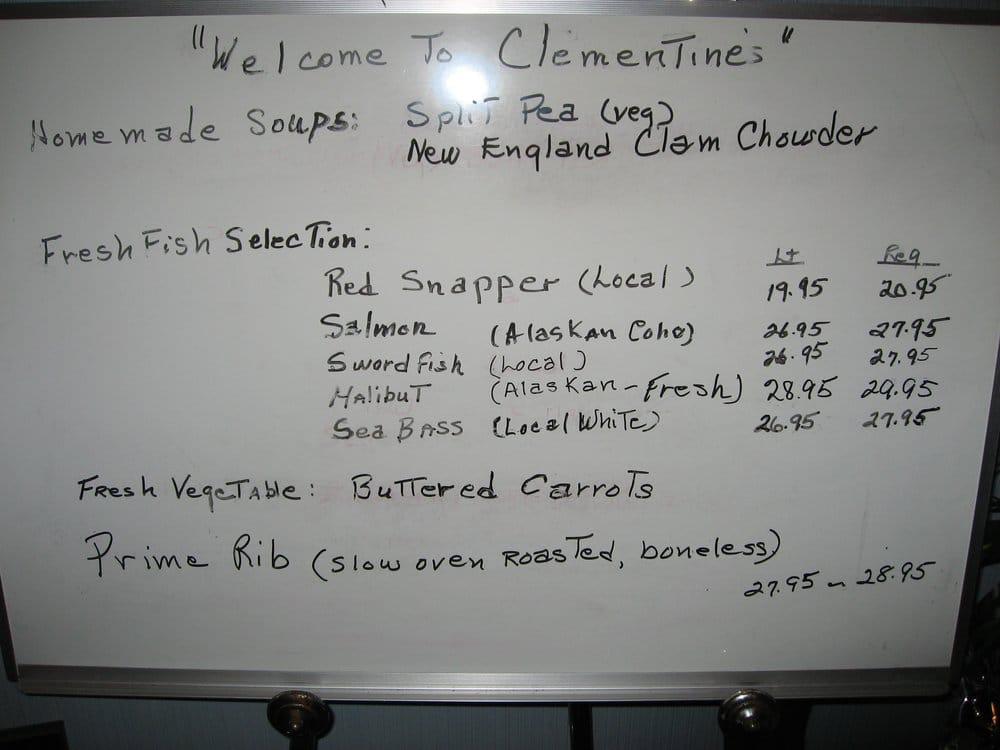 "Welcome To Clementine's"
Homemade Soups: Split Pea (veg)
New England Clam Chowder
Fresh Fish Selection:
Lt Reg
Red Snapper (Local) 19.95 20.95
Salmon (Alaskan Coho) 26.95 27.95
Swordfish (Local) 26.95 27.95
Halibut (Alaskan-Fresh) 28.95 29.95
Sea Bass (Local White) 26.95 27.95
Fresh Vegetable: Buttered Carrots
Prime Rib (slow oven Roasted, boneless)
27.95 ~ 28.95